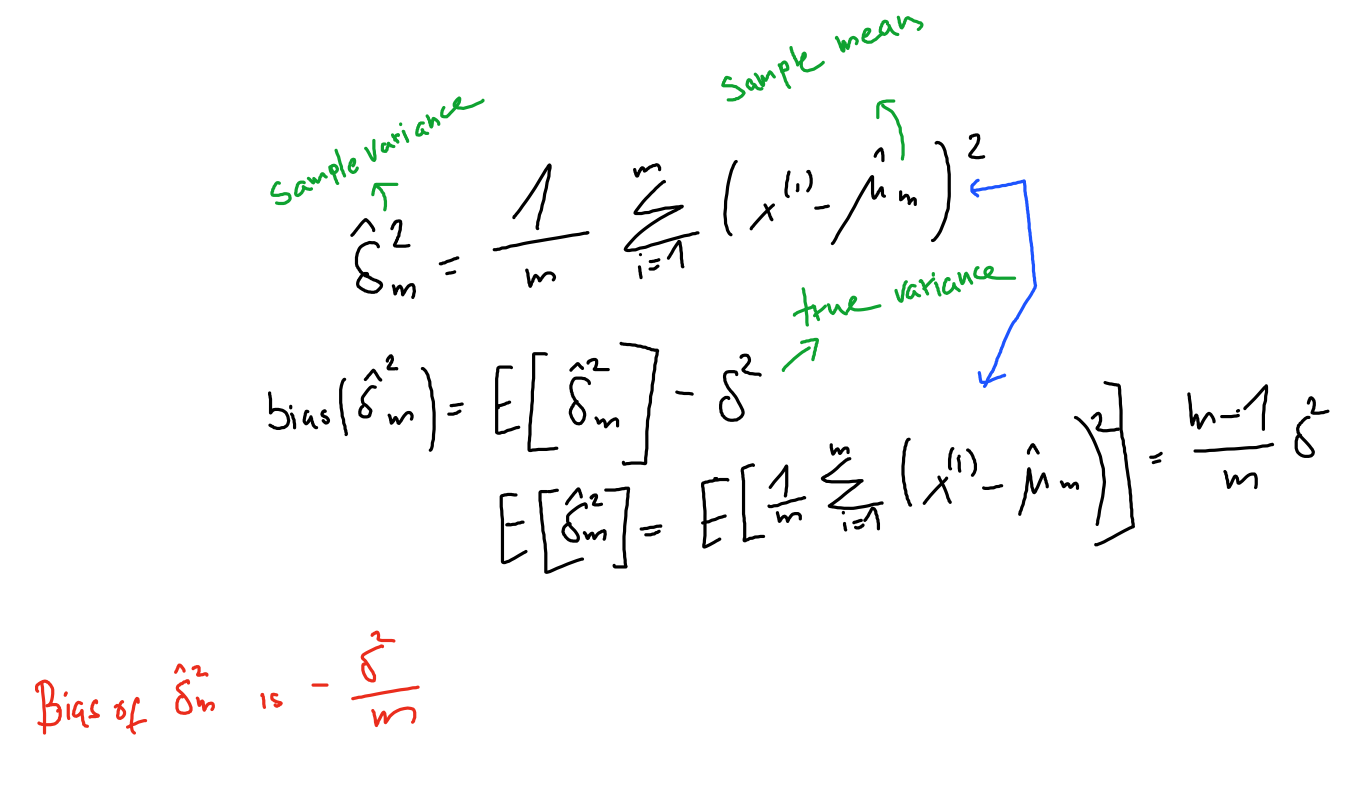 Sample mean
Sample variance
δ̂²ₘ = 1/m Σᵢ₌₁ᵐ (x⁽ⁱ⁾ - μ̂ₘ)²
true variance
bias(δ̂²ₘ) = E[δ̂²ₘ] - δ²
E[δ̂²ₘ] = E[1/m Σᵢ₌₁ᵐ (x⁽ⁱ⁾ - μ̂ₘ)²] = m-1/m δ²
Bias of δ̂²ₘ is - δ²/m